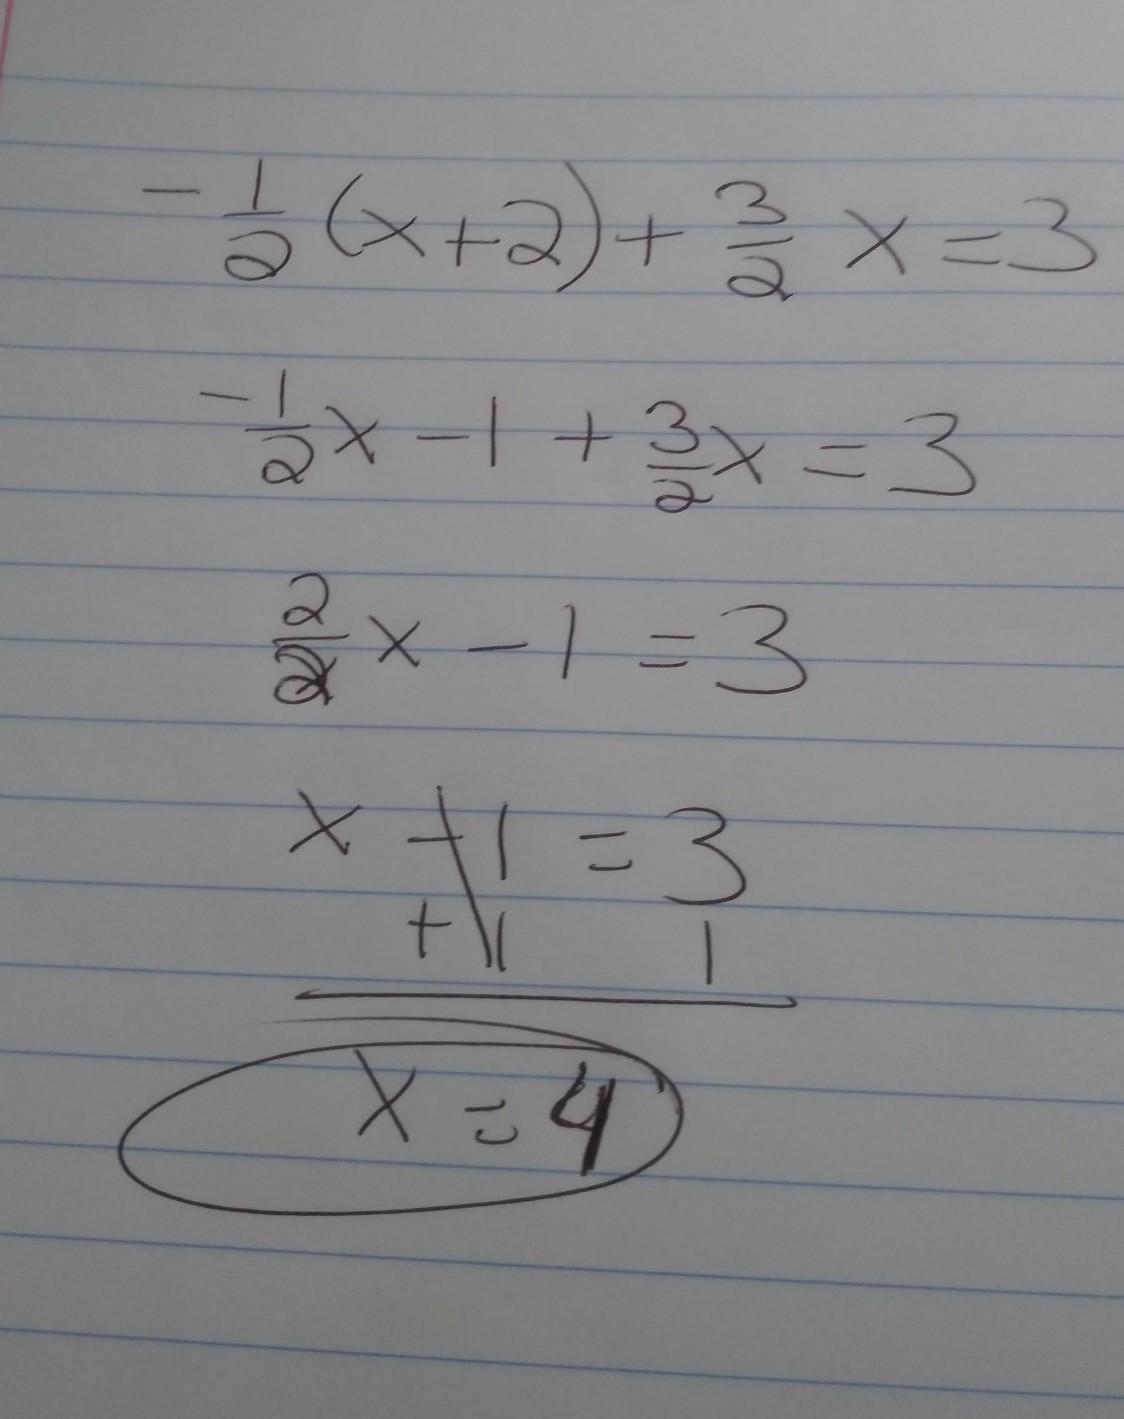 -1/2 (x+2) + 3/2 x = 3
-1/2 x - 1 + 3/2 x = 3
2/2 x - 1 = 3
x - 1 = 3
+ 1 1
x = 4